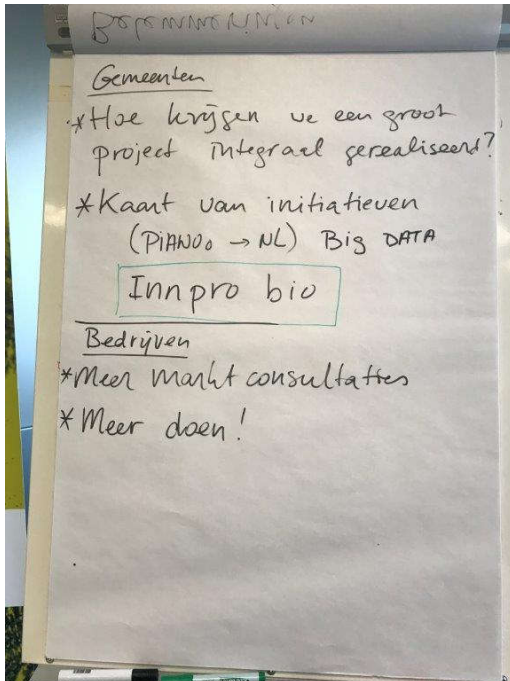 Gemeenten
*Hoe krijgen we een groot
project integraal gerealiseerd?
*Kaart van initiatieven
(PIANOo → NL) Big DATA
Innpro bio
Bedrijven
*Meer markt consultaties
*Meer doen!